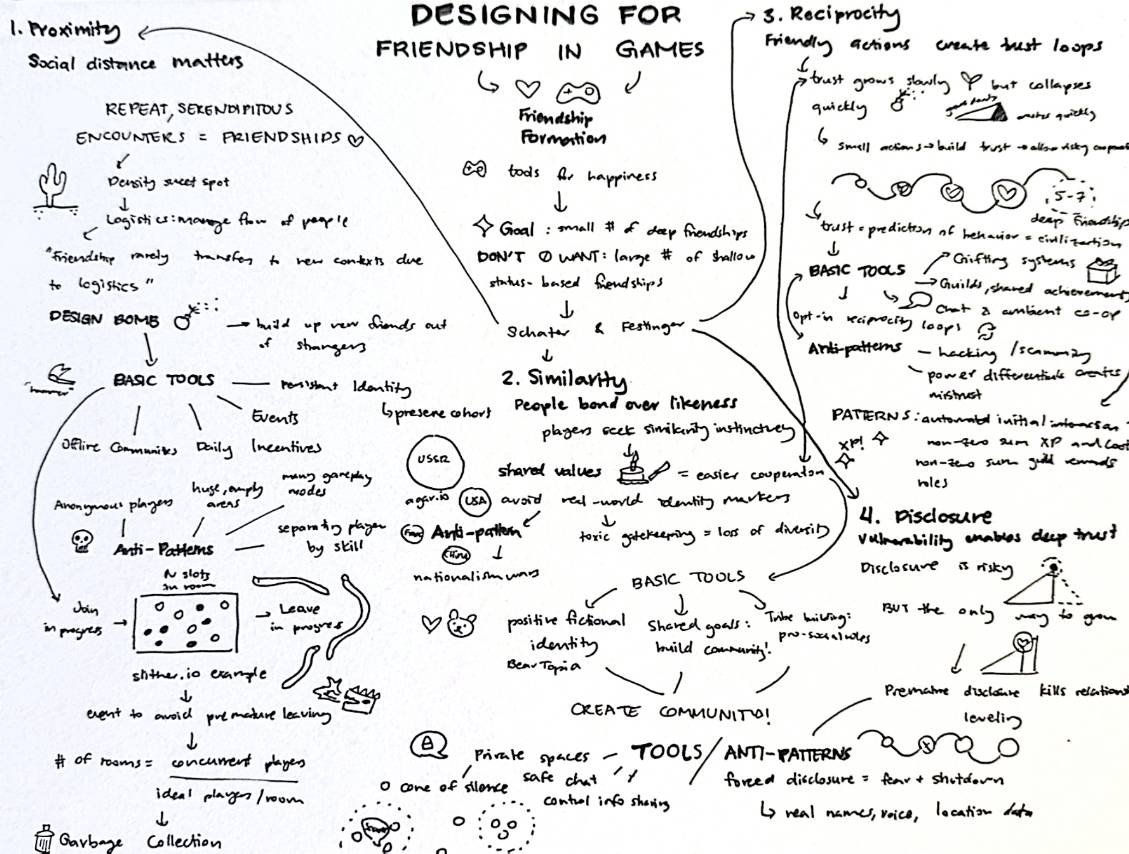 DESIGNING FOR
FRIENDSHIP IN GAMES
Friendship
Formation
tools for happiness
Goal: small # of deep friendships
DON'T WANT: large # of shallow
status-based friendships
Schater & Festinger
1. Proximity
Social distance matters
REPEAT, SERENDIPITOUS
ENCOUNTERS = FRIENDSHIPS
Density sweet spot
Logistics: manage flow of people
"Friendship rarely transfers to new contexts due
to logistics"
DESIGN BOMB
build up new friends out
of strangers
BASIC TOOLS
Persistent Identity
preserve cohort
Events
Offline Communities
Daily Incentives
Anonymous players
huge, empty
areas
many gameplay
modes
separating player
by skill
Anti-Patterns
N slots
in room
Join
in progress
Leave
in progress
slither.io example
event to avoid premature leaving
# of rooms = concurrent players
ideal players/room
Garbage Collection
2. Similarity
People bond over likeness
players seek similarity instinctively
USSR
shared values
= easier cooperation
agar.io
USA
avoid real-world identity markers
Anti-pattern
toxic gatekeeping = loss of diversity
China
nationalism wars
BASIC TOOLS
positive fictional
identity
Bear Topia
Shared goals:
build community!
Tribe building:
pro-social roles
CREATE COMMUNITY!
3. Reciprocity
Friendly actions create trust loops
trust grows slowly but collapses
quickly
quickly
small actions → build trust → allow risky
5-7
deep friendships
trust = prediction of behavior = civilization
BASIC TOOLS
Gifting systems
Guilds, shared achievements
Chat & ambient co-op
opt-in reciprocity loops
Anti-patterns
hacking/scamming
power differentials creates
mistrust
PATTERNS: automated initial interaction
XP!
non-zero sum XP and loot
non-zero sum guild rewards
roles
4. Disclosure
Vulnerability enables deep trust
Disclosure is risky
BUT the only way to grow
Premature disclosure kills relation
leveling
TOOLS / ANTI-PATTERNS
Private spaces
safe chat
cone of silence
control info sharing
forced disclosure = fear + shutdown
real names, voice, location data